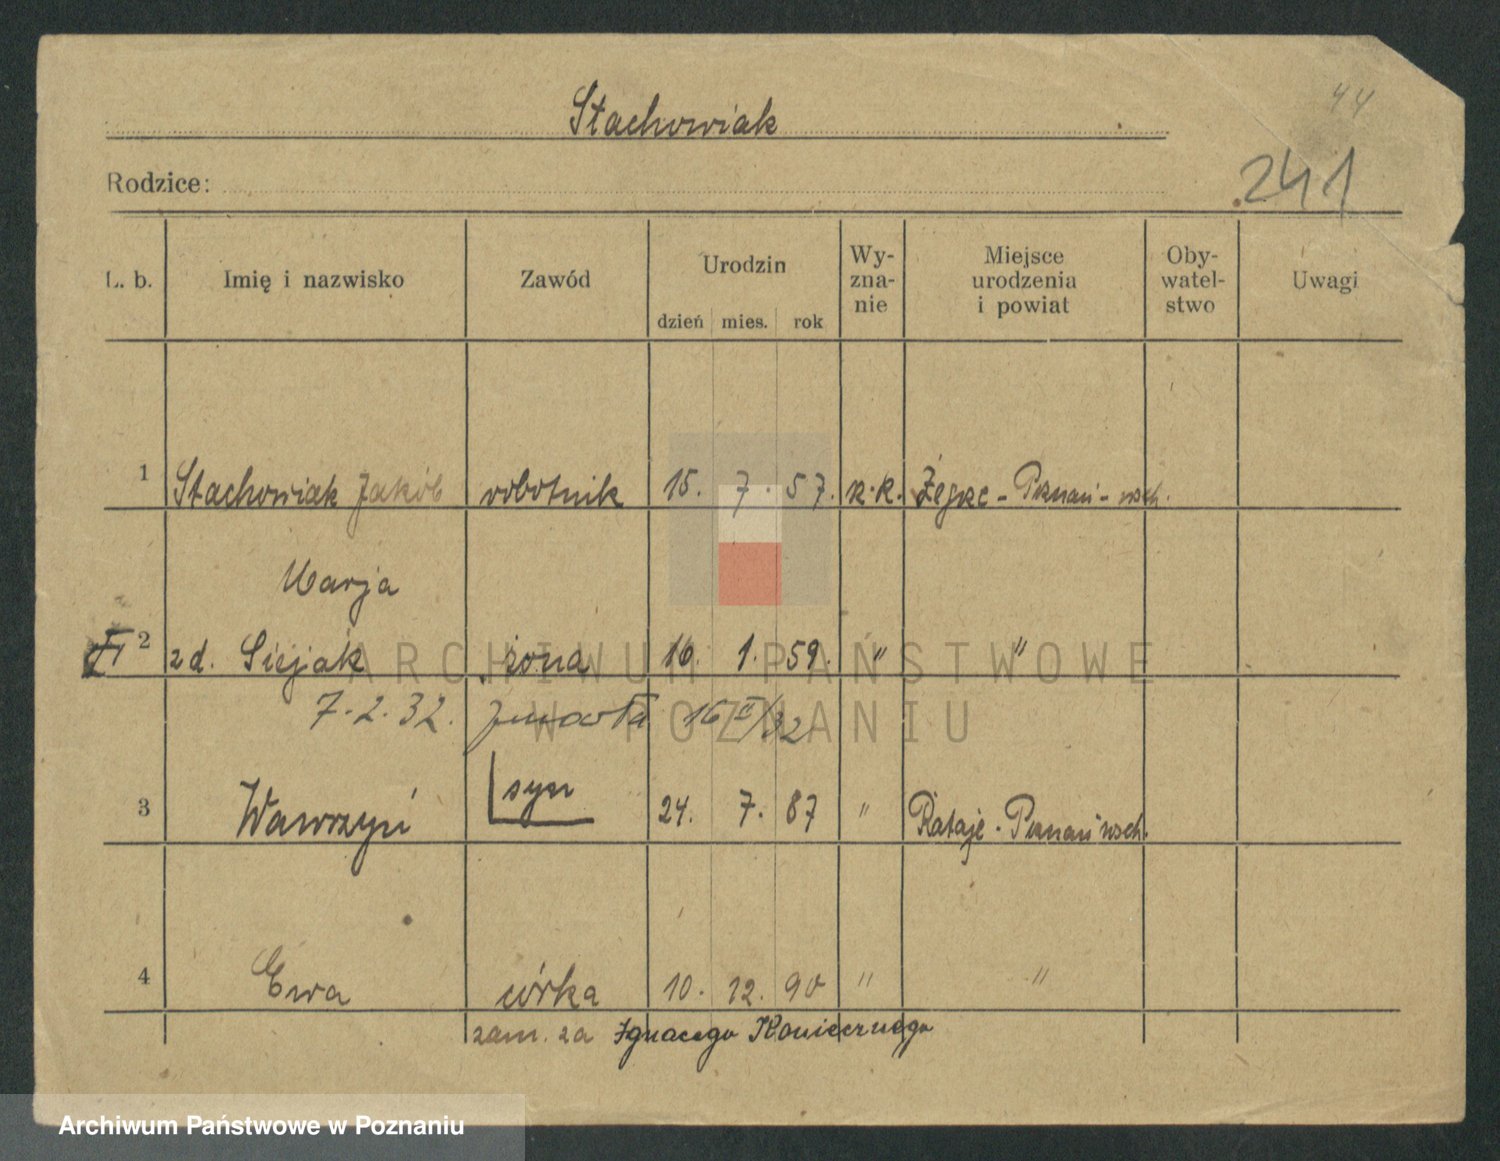 44
Stachowiak
241
Rodzice:
L. b. Imię i nazwisko Zawód Urodzin dzień mies. rok Wy-zna-nie Miejsce urodzenia i powiat Oby-watel-stwo Uwagi
1 Stachowiak Jakób robotnik 15. 7. 57. r.k. Żegrze - Poznań - wsch.
Marja
2 zd. Siejak żona 16. 1. 59. " "
7.2.32. zmarła 16 II/32
3 Wawrzyn syn 24. 7. 87 " Rataje - Poznań wsch.
4 Ewa córka 10. 12. 90 " "
zam. za Ignacego Koniecznego
ARCHIWUM PAŃSTWOWE
W POZNANIU
Archiwum Państwowe w Poznaniu